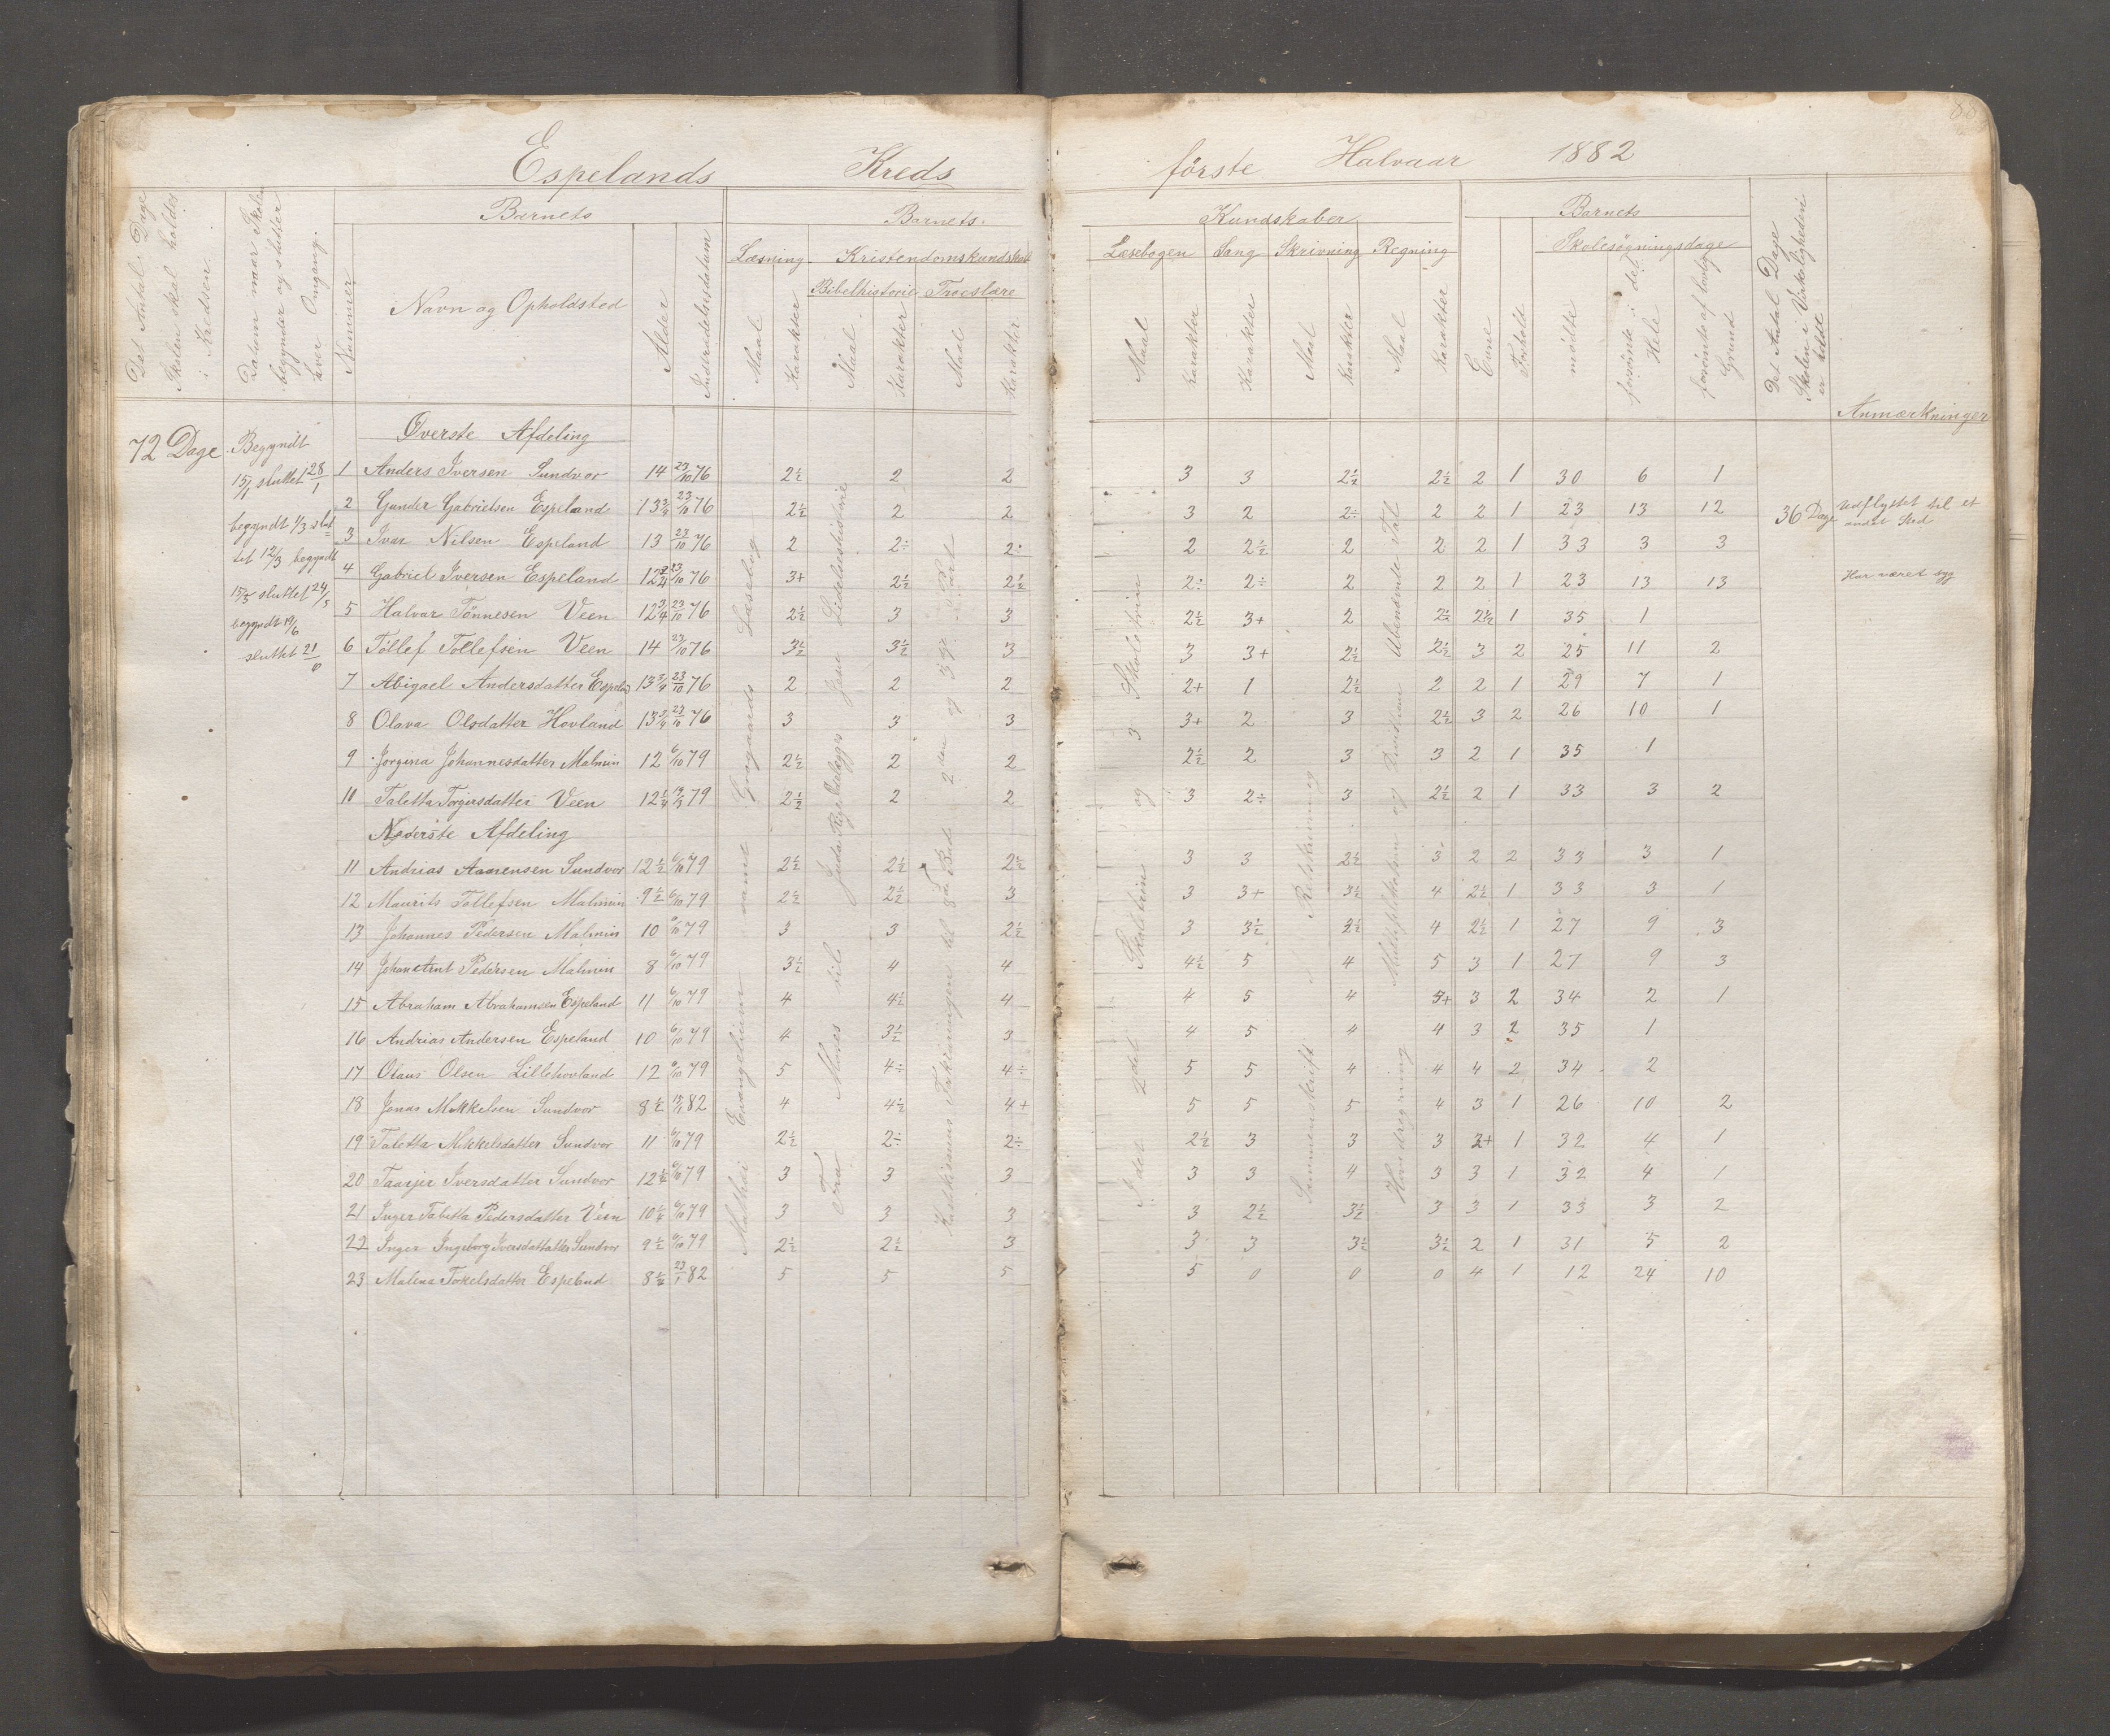 Espelands Kreds første Halvaar 1882
Det Antal Dage Skolen skal holdes i Kredsen
Datum naar Skolen begynder og slutter hver Omgang.
Nummer
Barnets
Navn og Opholdsted
Alder
Indtrædelsesdatum
Barnets Kundskaber
Læsning
Maal
Karakter
Kristendomskundskab
Bibelhistorie
Maal
Karakter
Troeslære
Maal
Karakter
Læsebogen
Maal
Karakter
Sang
Karakter
Skrivning
Maal
Karakter
Regning
Maal
Karakter
Barnets
Evne
Forhold
Skolesøgningsdage
mødte
forsømte i det Hele
forsømte af lovlig Grund
Det Antal Dage Skolen i Virkeligheden er holdt
Anmærkninger
72 Dage
Begyndt
15/1 sluttet 28/1
begyndt 1/3 slut
tet 12/3 begyndt
15/5 sluttet 24/5
begyndt 19/6
sluttet 21/6
Øverste Afdeling
1 Anders Iversen Sundvor 14 23/10 76 2½ 2 2 3 3 2½ 2½ 2 1 30 6 1
2 Gunder Gabrielsen Espeland 13¾ 23/10 76 2½ 2 2 3 2 2÷ 2 2 1 23 13 12 36 Dage Udflyttet til et andet Sted
3 Ivar Nilsen Espeland 13 23/10 76 2 2÷ 2÷ 2 2½ 2 2 2 1 33 3 3
4 Gabriel Iversen Espeland 12¾ 23/10 76 3+ 2½ 2½ 2÷ 2÷ 2 2 2 1 23 13 13 Har været syg
5 Halvar Tönnesen Veen 12¾ 23/10 76 2½ 3 3 2½ 3+ 2 2÷ 2½ 1 35 1
6 Töllef Tollefsen Veen 14 23/10 76 3½ 3½ 3 3 3+ 2½ 2½ 3 2 25 11 2
7 Abigael Andersdatter Espeland 13¾ 23/10 76 2 2 2 2+ 1 2½ 2 2 1 29 7 1
8 Olava Olsdatter Hovland 13¾ 23/10 76 3 3 3 3+ 2 3 2½ 3 2 26 10 1
9 Jorgina Johannesdatter Malmin 12 6/10 79 2½ 2 2 2½ 2 3 3 2 1 35 1
10 Taletta Torgersdatter Veen 12¼ 79 2½ 2 2 3 2÷ 3 2½ 2 1 33 3 2
Nederste Afdeling
11 Andrias Aanensen Sundvor 12½ 6/10 79 2½ 2½ 2½ 3 3 2½ 3 2 2 33 3 1
12 Maurits Tollefsen Malmin 9½ 6/10 79 2½ 2½ 3 3 3+ 3½ 4 2½ 1 33 3 1
13 Johannes Pedersen Malmin 10 6/10 79 3 3 2½ 3 3½ 3½ 4 2½ 1 27 9 3
14 Johan Arnt Pedersen Malmin 8 6/10 79 3½ 4 4 4½ 5 4 5 3 1 27 9 3
15 Abraham Abrahamsen Espeland 11 6/10 79 4 4½ 4 4 5 4 5+ 3 2 34 2 1
16 Andrias Andersen Espeland 10 6/10 79 4 3½ 3 4 5 4 4 3 2 35 1
17 Olaus Olsen Lillehovland 12 6/10 79 5 4÷ 4÷ 5 5 4 4 4 2 34 2
18 Jonas Mikkelsen Sundvor 8½ 15/1 82 4 4½ 4+ 5 5 5 4 3 1 26 10 2
19 Taletta Mikkelsdatter Sundvor 11 6/10 79 2½ 2÷ 2÷ 2½ 3 3 3 2+ 1 32 4 1
20 Taarjer Iversdatter Sundvor 12½ 6/10 79 3 3 3 3 3 4 3 3 1 32 4 1
21 Inger Tabitta Pedersdatter Veen 10¼ 6/10 79 3 3 3 3 2½ 3½ 3 3 1 33 3 2
22 Inger Ingeborg Iversdattatter Sundvor 9½ 6/10 79 2½ 2½ 3 3 3 3½ 3½ 2 1 31 5 2
23 Malena Tokelsdatter Espelund 8½ 23/1 82 5 5 5 5 0 0 0 4 1 12 24 10
Mathæi Evangelium samt Grøgaards Læsebog
Fra Moses til Juda Riges Ødelæggelse Jesu Lidelseshistorie
Katekismus Forklaringen til 3die Bud 2den og 3die Part
1ste og 2det Skoletrin og 3 Skoletrin
Sammenskrift Retskrivning
Hovedregning Multiplikation og Division Ubenævnte Tal